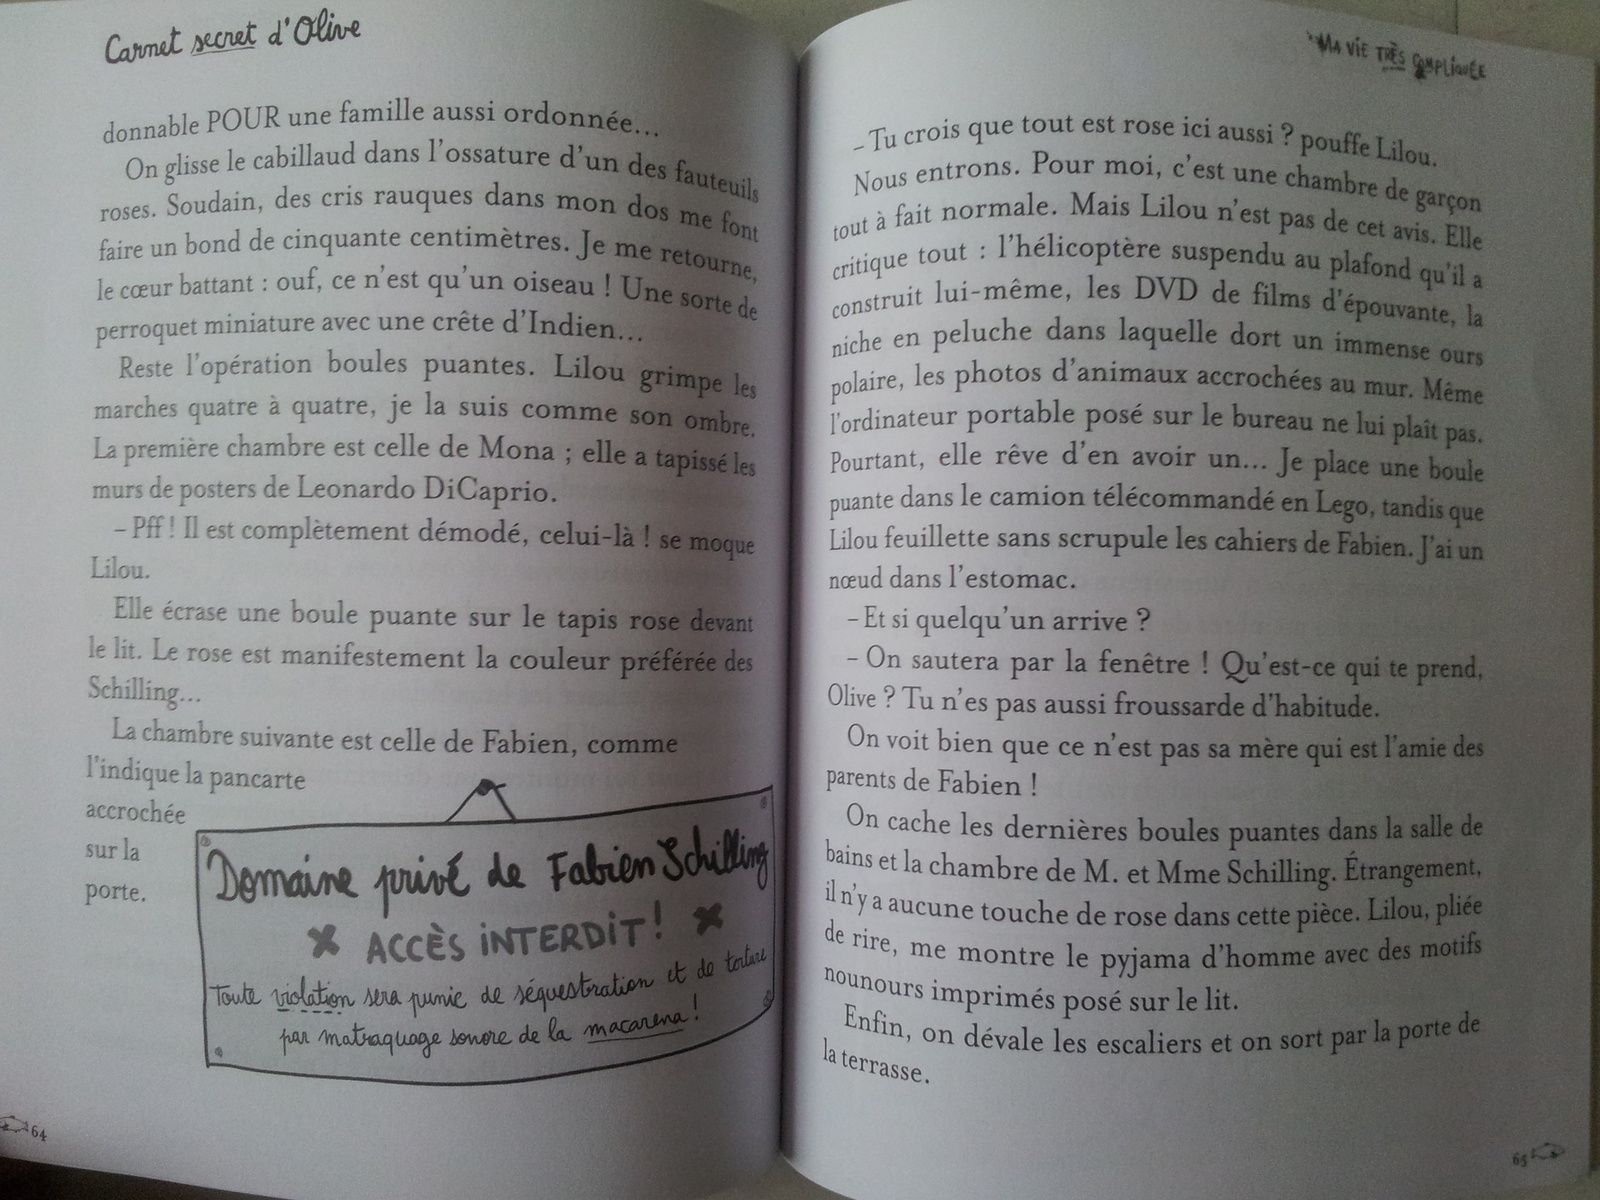 Carnet secret d'Olive
donnable POUR une famille aussi ordonnée...
On glisse le cabillaud dans l'ossature d'un des fauteuils
roses. Soudain, des cris rauques dans mon dos me font
faire un bond de cinquante centimètres. Je me retourne,
le cœur battant : ouf, ce n'est qu'un oiseau ! Une sorte de
perroquet miniature avec une crête d'Indien...
Reste l'opération boules puantes. Lilou grimpe les
marches quatre à quatre, je la suis comme son ombre.
La première chambre est celle de Mona ; elle a tapissé les
murs de posters de Leonardo DiCaprio.
– Pff ! Il est complètement démodé, celui-là ! se moque
Lilou.
Elle écrase une boule puante sur le tapis rose devant
le lit. Le rose est manifestement la couleur préférée des
Schilling...
La chambre suivante est celle de Fabien, comme
l'indique la pancarte
accrochée
sur la
porte.
Domaine privé de Fabien Schilling
ACCÈS INTERDIT !
Toute violation sera punie de séquestration et de torture
par matraquage sonore de la macarena !
64
MA VIE TRÈS COMPLIQUÉE
– Tu crois que tout est rose ici aussi ? pouffe Lilou.
Nous entrons. Pour moi, c'est une chambre de garçon
tout à fait normale. Mais Lilou n'est pas de cet avis. Elle
critique tout : l'hélicoptère suspendu au plafond qu'il a
construit lui-même, les DVD de films d'épouvante, la
niche en peluche dans laquelle dort un immense ours
polaire, les photos d'animaux accrochées au mur. Même
l'ordinateur portable posé sur le bureau ne lui plaît pas.
Pourtant, elle rêve d'en avoir un... Je place une boule
puante dans le camion télécommandé en Lego, tandis que
Lilou feuillette sans scrupule les cahiers de Fabien. J'ai un
nœud dans l'estomac.
– Et si quelqu'un arrive ?
– On sautera par la fenêtre ! Qu'est-ce qui te prend,
Olive ? Tu n'es pas aussi froussarde d'habitude.
On voit bien que ce n'est pas sa mère qui est l'amie des
parents de Fabien !
On cache les dernières boules puantes dans la salle de
bains et la chambre de M. et Mme Schilling. Étrangement,
il n'y a aucune touche de rose dans cette pièce. Lilou, pliée
de rire, me montre le pyjama d'homme avec des motifs
nounours imprimés posé sur le lit.
Enfin, on dévale les escaliers et on sort par la porte de
la terrasse.
65